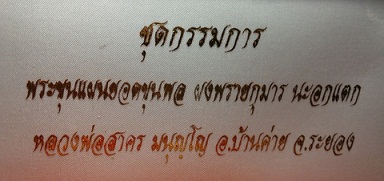 ชุดกรรมการ
พระขุนแผนยอดขุนพล ผงพรายกุมาร นะอกแตก
หลวงพ่อสาคร มนุญฺโญ อ.บ้านค่าย จ.ระยอง